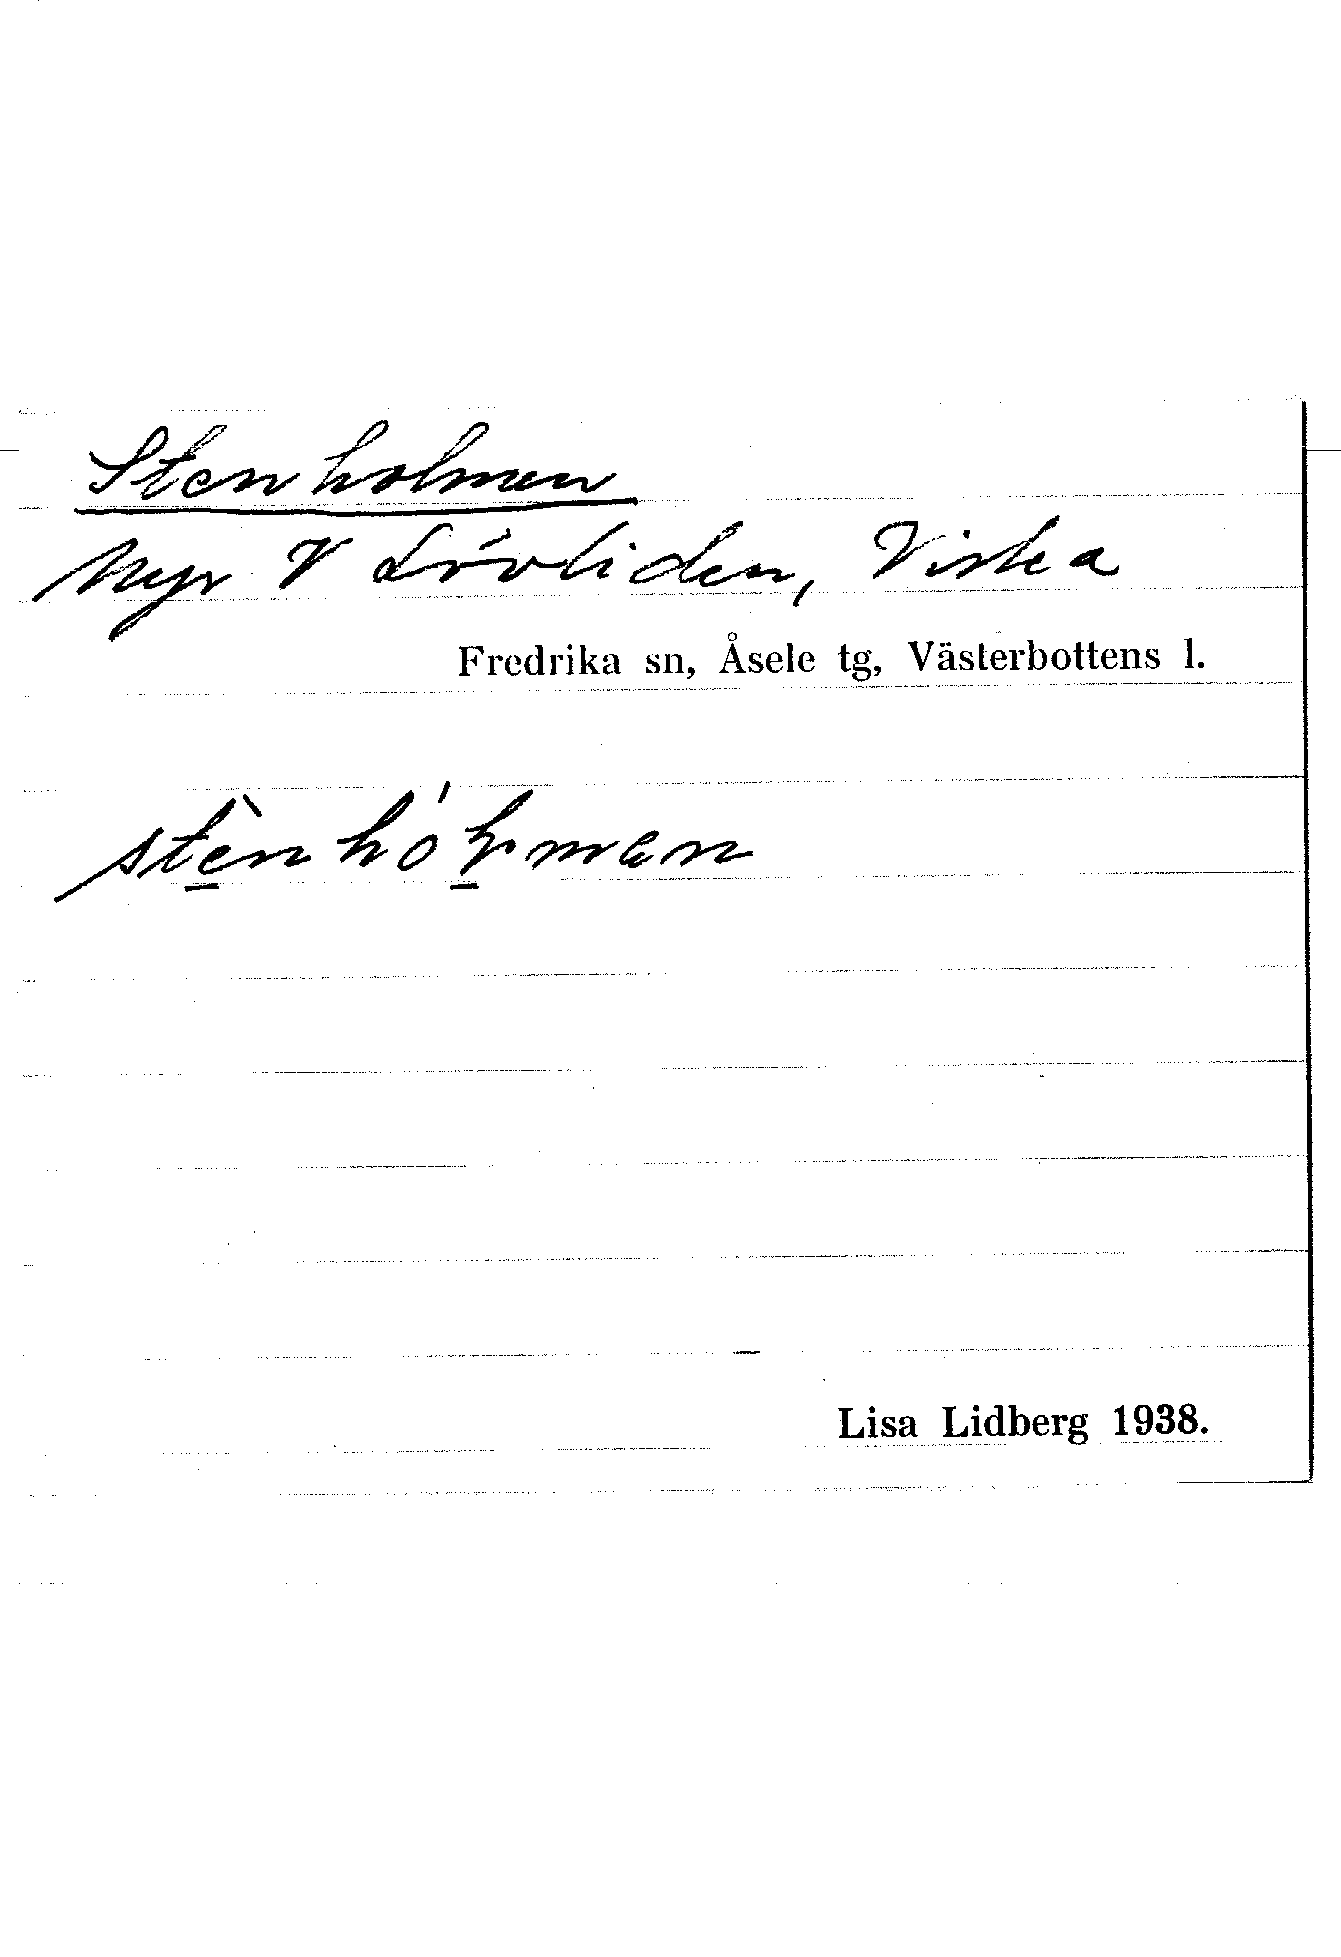 Stenholmen
Myr V Lövliden, Viska
Fredrika sn, Åsele tg, Västerbottens l.
stènhóḷman
Lisa Lidberg 1938.